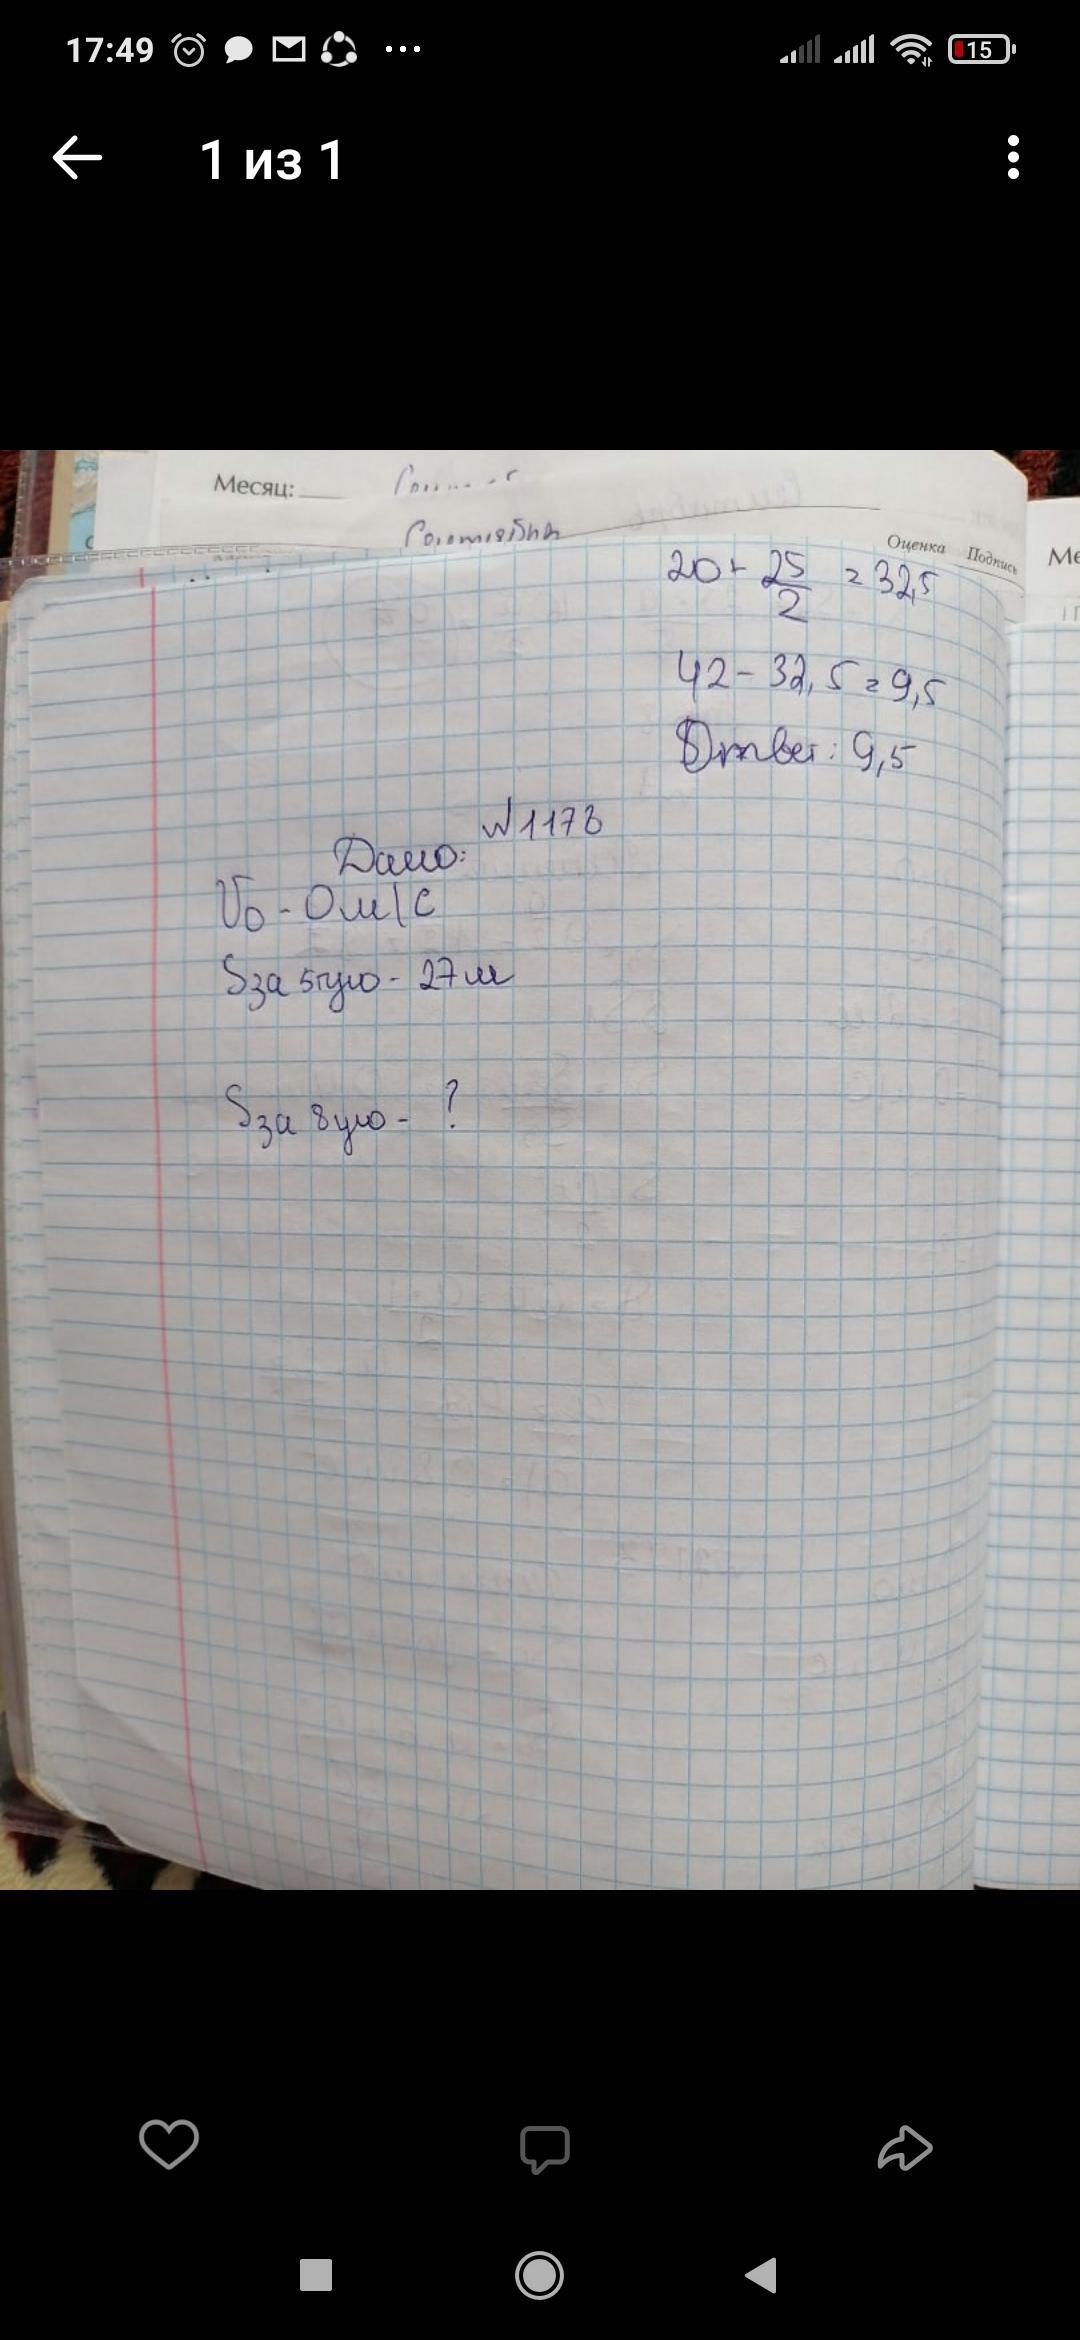 17:49
15
1 из 1
Месяц:
Оценка Подпись
Ме
20+ 25/2 = 32,5
42 - 32,5 = 9,5
Ответ: 9,5
№1178
Дано:
V0 - 0 м/с
Sза 5тую - 27 м
Sза 8ую - ?